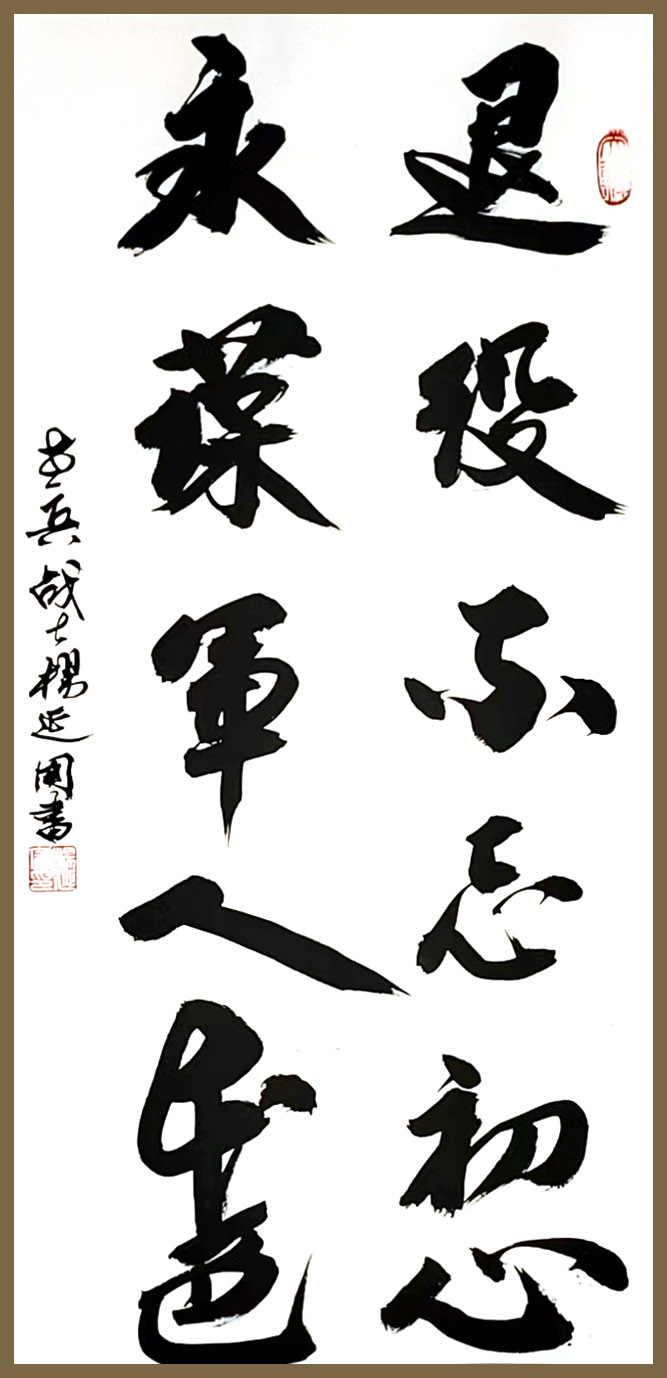 退役不忘初心
永葆軍人本色
老兵战士楊延国書